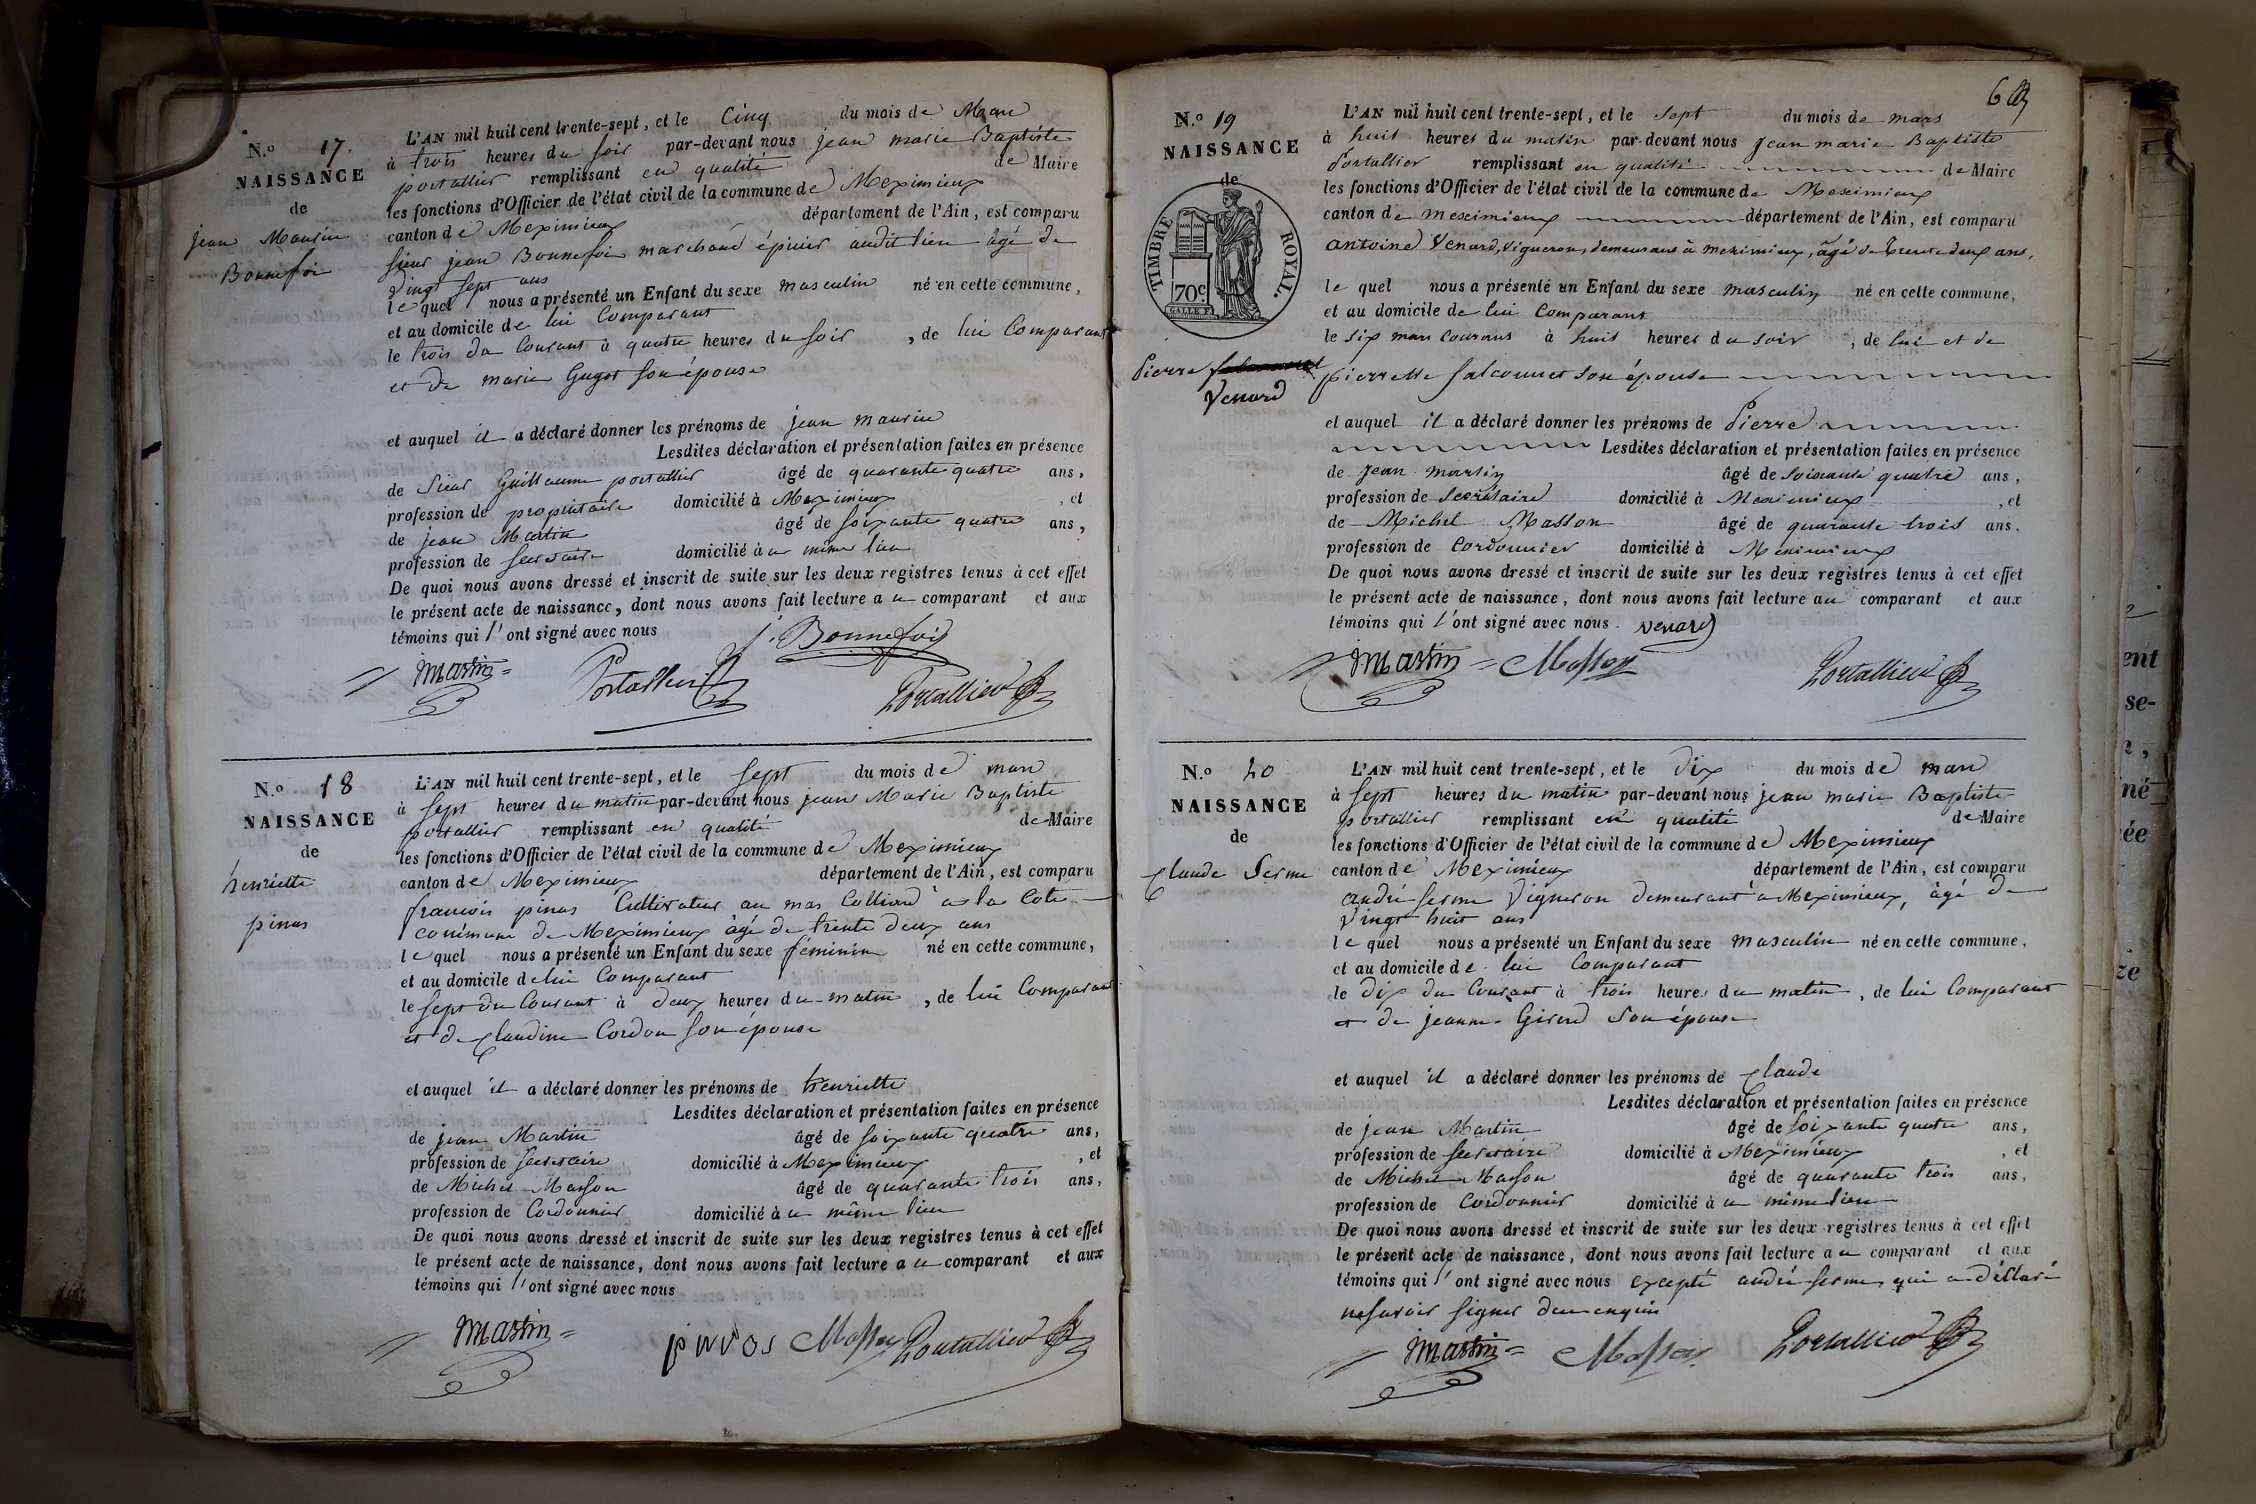 N.o 17.
NAISSANCE
de
jean Maurice
Bonnefoi
L'AN mil huit cent trente-sept, et le Cinq du mois de Mars
à trois heures du soir par-devant nous jean marie Baptiste
portallier remplissant en qualité de Maire
les fonctions d'Officier de l'état civil de la commune de Meximieux
canton de Meximieux département de l'Ain, est comparu
sieur jean Bonnefoi marchand épicier audit lieu âgé de
vingt sept ans
lequel nous a présenté un Enfant du sexe masculin né en cette commune,
et au domicile de lui Comparant
le trois du Courant à quatre heures du soir, de lui Comparant
et de marie Guyot son épouse
et auquel il a déclaré donner les prénoms de jean maurice
Lesdites déclaration et présentation faites en présence
de sieur Guillaume portallier âgé de quarante quatre ans,
profession de propriétaire domicilié à Meximieux, et
de jean Martin âgé de soixante quatre ans,
profession de secrétaire domicilié au même lieu
De quoi nous avons dressé et inscrit de suite sur les deux registres tenus à cet effet
le présent acte de naissance, dont nous avons fait lecture au comparant et aux
témoins qui l'ont signé avec nous
j. Bonnefoi
martin Portallier Portallier
N.o 18
NAISSANCE
de
henriette
pinos
L'AN mil huit cent trente-sept, et le sept du mois de mars
à sept heures du matin par-devant nous jean Marie Baptiste
portallier remplissant en qualité de Maire
les fonctions d'Officier de l'état civil de la commune de Meximieux
canton de Meximieux département de l'Ain, est comparu
francois pinos Cultivateur au mas Colliard à la Cote
commune de Meximieux âgé de trente deux ans
lequel nous a présenté un Enfant du sexe féminin né en cette commune,
et au domicile de lui Comparant
le sept du Courant à deux heures du matin, de lui Comparant
et de Claudine Cordon son épouse
et auquel il a déclaré donner les prénoms de henriette
Lesdites déclaration et présentation faites en présence
de jean Martin âgé de soixante quatre ans,
profession de secretaire domicilié à Meximieux, et
de Michel Masson âgé de quarante trois ans,
profession de Cordonnier domicilié au même lieu
De quoi nous avons dressé et inscrit de suite sur les deux registres tenus à cet effet
le présent acte de naissance, dont nous avons fait lecture au comparant et aux
témoins qui l'ont signé avec nous
martin pinos Masson Portallier
N.o 19
NAISSANCE
de
TIMBRE ROYAL.
70c
Pierre
Venard
L'AN mil huit cent trente-sept, et le sept du mois de mars
à huit heures du matin par-devant nous jean marie Baptiste
Portallier remplissant en qualité de Maire
les fonctions d'Officier de l'état civil de la commune de Meximieux
canton de meximieux département de l'Ain, est comparu
antoine Venard, vigneron, demeurant à meximieux, âgé de trente deux ans,
lequel nous a présenté un Enfant du sexe masculin né en cette commune,
et au domicile de lui Comparant
le six mars courant à huit heures du soir, de lui et de
pierrette falconnet son épouse
et auquel il a déclaré donner les prénoms de Pierre
Lesdites déclaration et présentation faites en présence
de Jean martin âgé de soixante quatre ans,
profession de Secrétaire domicilié à Meximieux, et
de Michel Masson âgé de quarante trois ans,
profession de Cordonnier domicilié à Meximieux
De quoi nous avons dressé et inscrit de suite sur les deux registres tenus à cet effet
le présent acte de naissance, dont nous avons fait lecture au comparant et aux
témoins qui l'ont signé avec nous. venard
martin Masson Portallier
N.o 20
NAISSANCE
de
Claude Serme
L'AN mil huit cent trente-sept, et le dix du mois de mars
à sept heures du matin par-devant nous jean marie Baptiste
portallier remplissant en qualité de Maire
les fonctions d'Officier de l'état civil de la commune de Meximieux
canton de Meximieux département de l'Ain, est comparu
andré serme vigneron demeurant à Meximieux, âgé de
vingt huit ans
lequel nous a présenté un Enfant du sexe masculin né en cette commune,
et au domicile de lui Comparant
le dix du Courant à trois heures du matin, de lui Comparant
et de jeanne Girard son épouse
et auquel il a déclaré donner les prénoms de Claude
Lesdites déclaration et présentation faites en présence
de jean Martin âgé de soixante quatre ans,
profession de secrétaire domicilié à Meximieux, et
de Michel Masson âgé de quarante trois ans,
profession de Cordonnier domicilié au même lieu
De quoi nous avons dressé et inscrit de suite sur les deux registres tenus à cet effet
le présent acte de naissance, dont nous avons fait lecture au comparant et aux
témoins qui l'ont signé avec nous excepté andré serme qui a déclaré
ne savoir signer de ce enquis
martin Masson Portallier